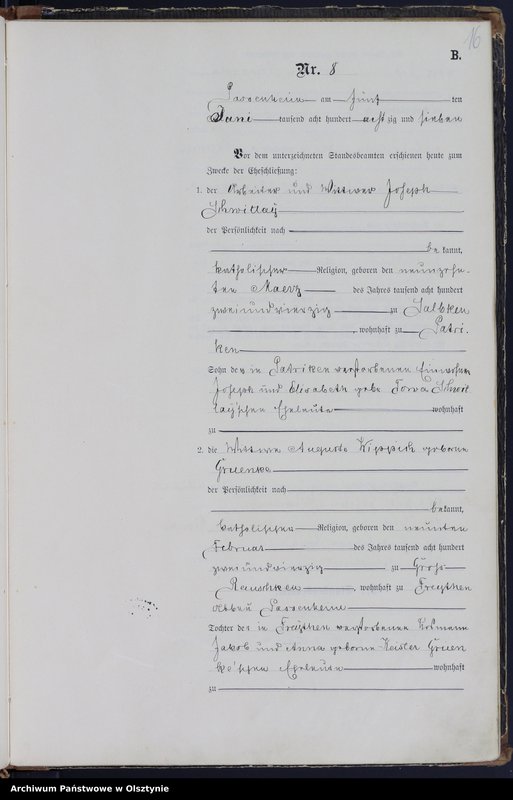 16
B.
Nr. 8
Passenheim am fünf ten
Juni tausend acht hundert acht zig und sieben
Vor dem unterzeichneten Standesbeamten erschienen heute zum
Zwecke der Eheschließung:
1. der Arbeiter und Wittwer Joseph
Schwittay
der Persönlichkeit nach
be kannt,
katholischer Religion, geboren den neunzehn-
ten Maerz des Jahres tausend acht hundert
zwei und vierzig zu
, wohnhaft zu Patri-
ken
Sohn der in Patriken verstorbenen Einwohner
Joseph und Elisabeth gebr. Schwit
tay'schen Eheleute wohnhaft
zu
2. die Wittwe Auguste geborne
Gruenke
der Persönlichkeit nach
bekannt,
katholischer Religion, geboren den neunten
Februar des Jahres tausend acht hundert
zwei und vierzig zu Groß
Rauschken, wohnhaft zu
Passenheim
Tochter der in verstorbenen
Jakob und Anna geborne Gruen
ke'schen Eheleute wohnhaft
zu
Archiwum Państwowe w Olsztynie